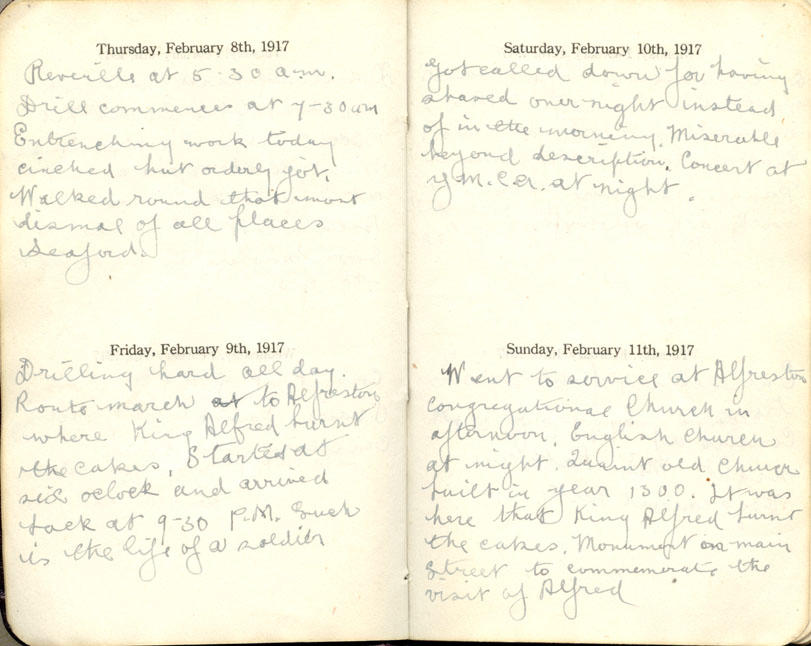 Thursday, February 8th, 1917
Reveille at 5-30 a.m.
Drill commences at 7-30 am
Entrenching work today
cinched but orderly got.
Walked round that most
dismal of all places
Seaford.
Friday, February 9th, 1917
Drilling hard all day.
Route march at to Alfreston
where King Alfred burnt
the cakes. Started at
six oclock and arrived
back at 9-30 P.M. Such
is the life of a soldier
Saturday, February 10th, 1917
Got called down for having
shaved over night instead
of in the morning. Miserable
beyond description. Concert at
Y.M.C.A. at night.
Sunday, February 11th, 1917
Went to service at Alfreston
Congregational Church in
afternoon, English Church
at night. Quaint old Church
built in year 1300. It was
here that King Alfred burnt
the cakes. Monument on main
Street to commemorate the
visit of Alfred